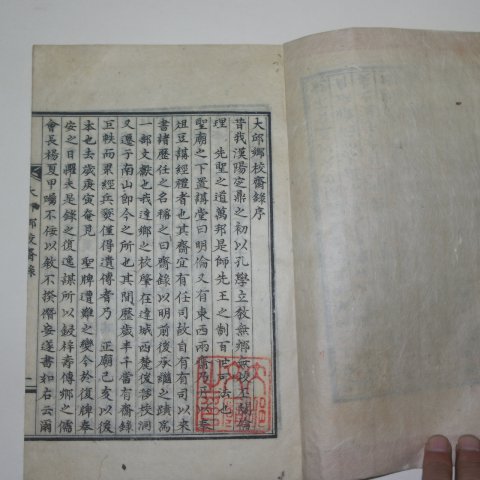 大邱鄉校齋錄序
昔我漢陽定鼎之初以孔學立敎無鄉無校丕闡倫
理 先聖之道萬邦是師先王之制百世可法也
聖廟之下置講堂曰明倫又有東西兩齋乃
俎豆講經禮者也其齋宜有任司故自有有司以來
書諸歷任之名稱之曰齋錄以明前後承繼之蹟爲
一部文獻也我達鄉之校肇在達城西麓後移校洞
又遷于南山卽今之所也其間歷歲半千當有齋錄
正帙而累經兵燹僅得遺傳者乃 正廟己亥以後
本也去歲庚寅奄見 聖牌遭難之變今於復牌奉
安之日懼夫是錄之復逸謀所以鋟梓壽傳鄉之儒
會長楊夏甲囑不佞以敘不揆僭妄謹書如右云爾
大邱鄉校齋錄
一